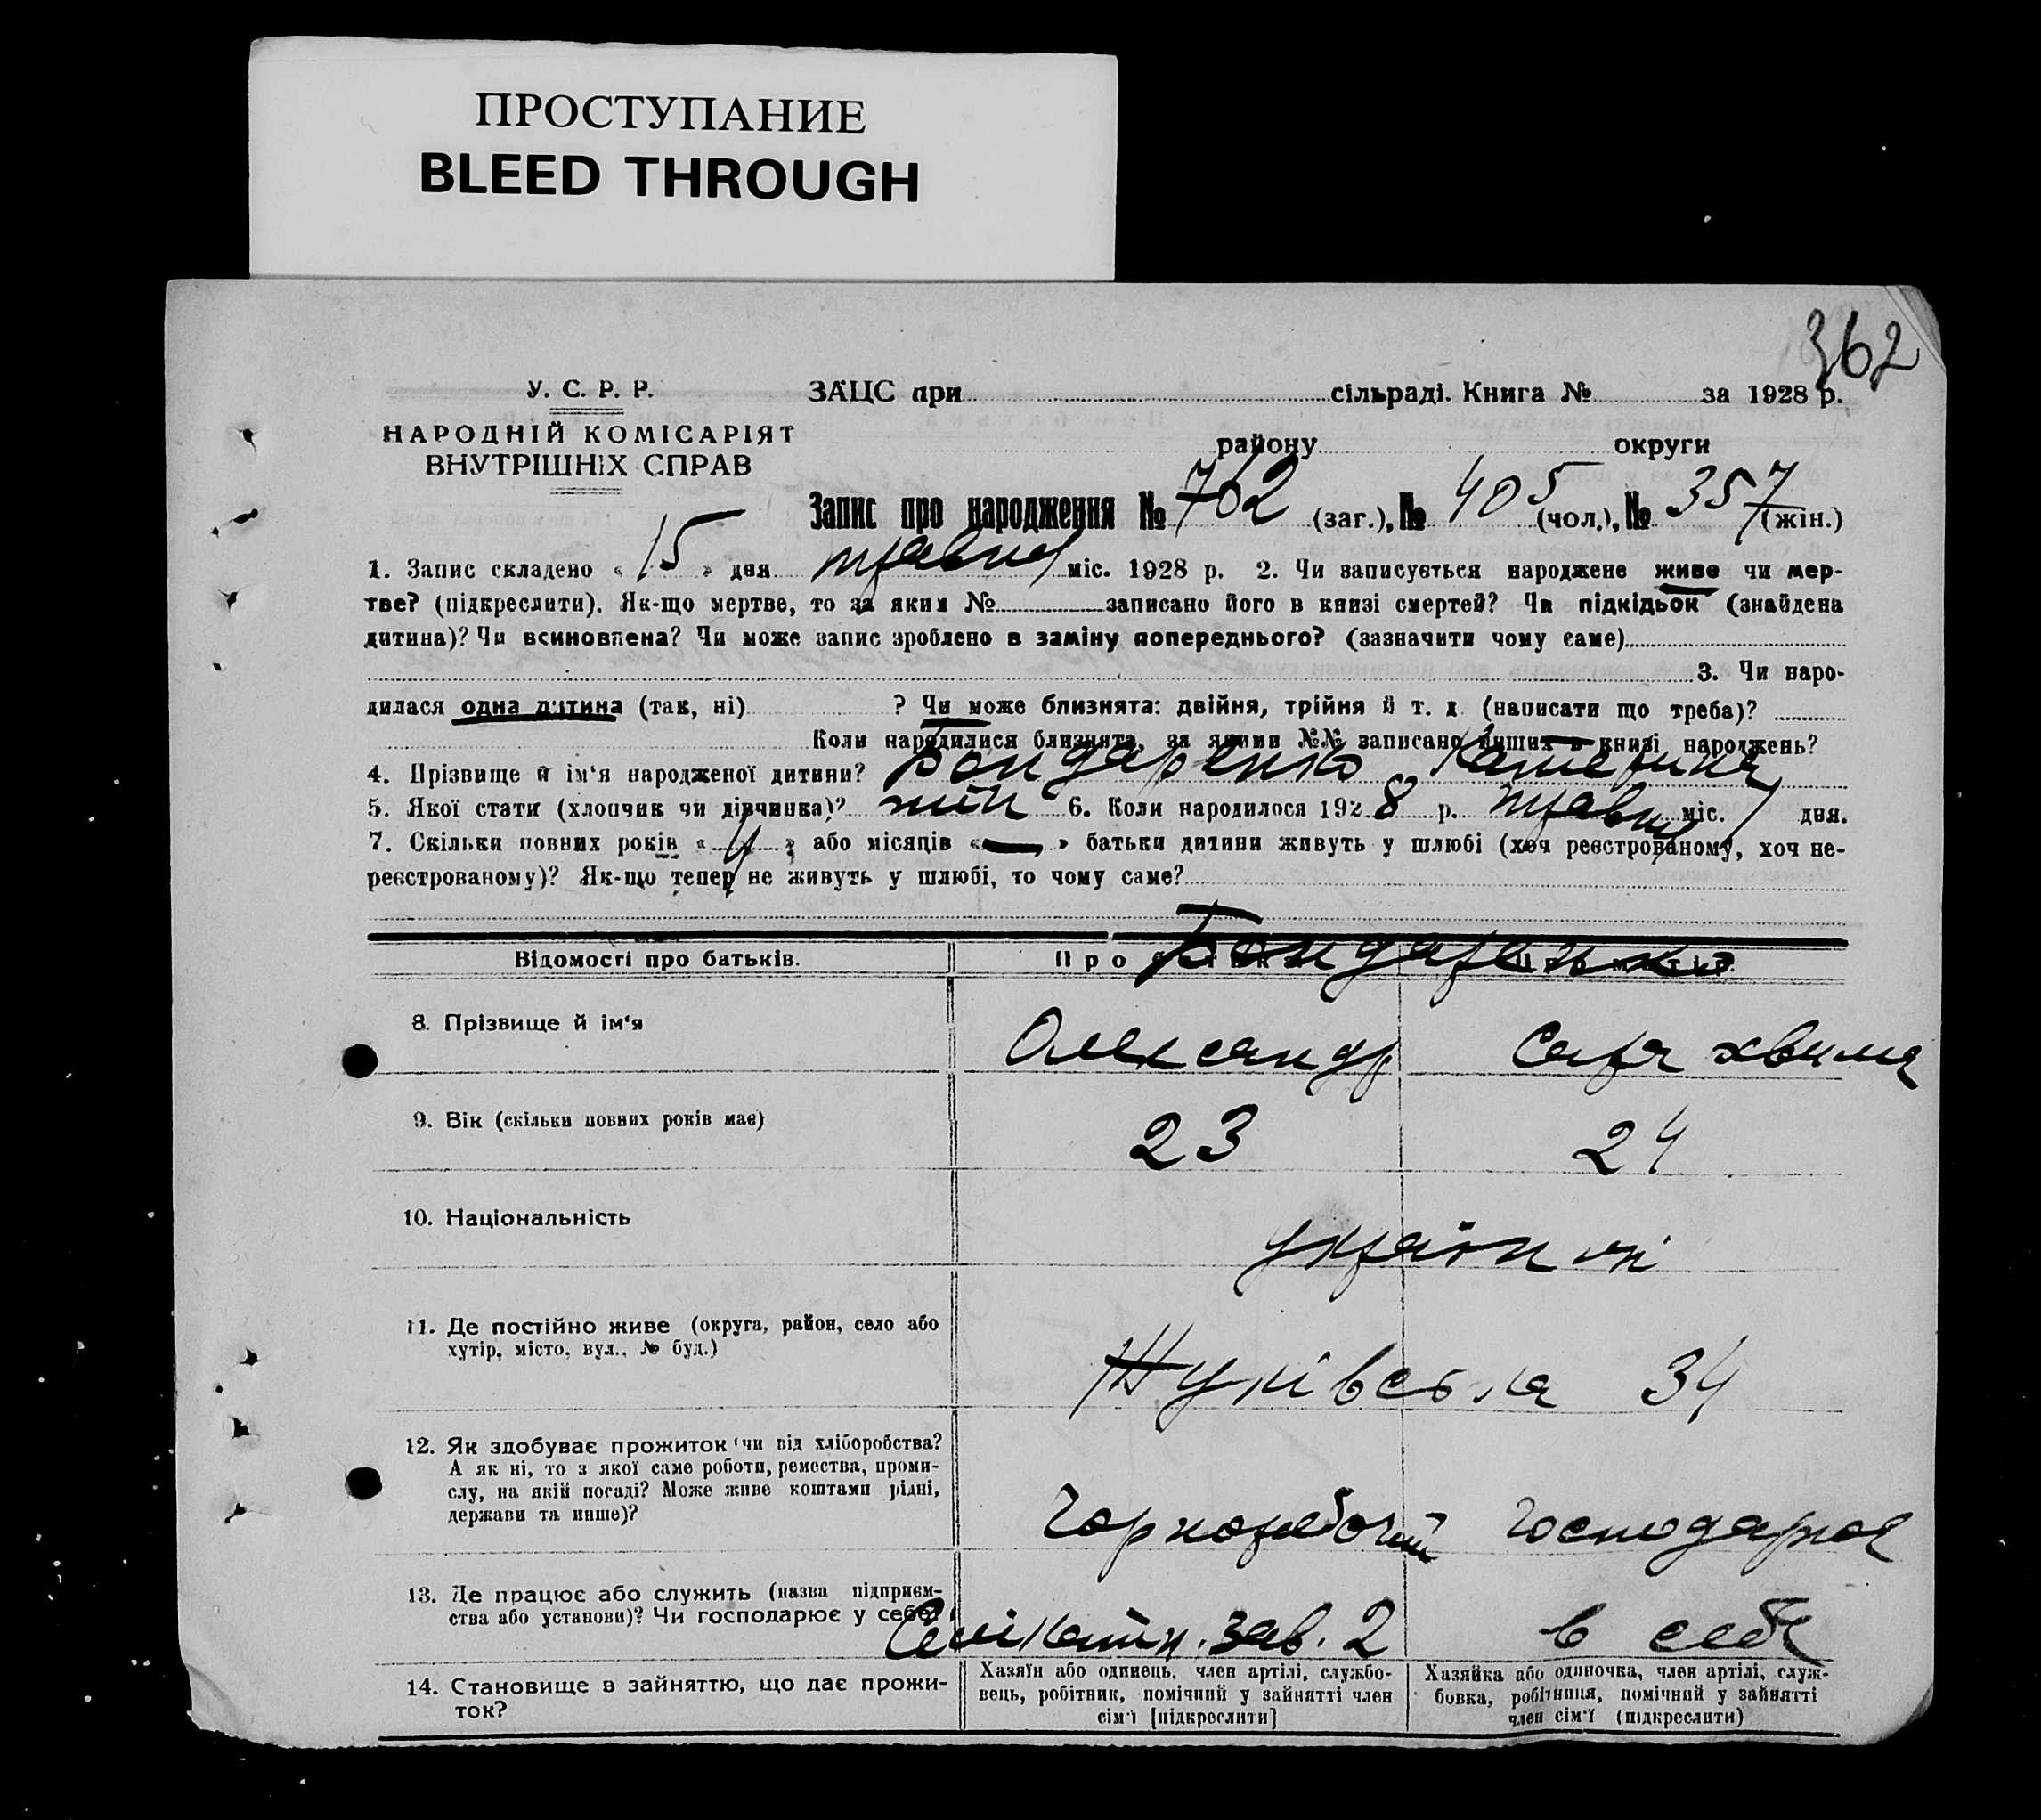 ПРОСТУПАНИЕ
BLEED THROUGH
362
У. С. Р. Р. ЗАЦС при сільраді. Книга № за 1928 р.
НАРОДНІЙ КОМІСАРІЯТ
ВНУТРІШНІХ СПРАВ
району округи
Запис про народження № 762 (заг.), № 405 (чол.), № 357 (жін.)
1. Запис складено « 15 » дня травня міс. 1928 р. 2. Чи записується народжене живе чи мер-
тве? (підкреслити). Як-що мертве, то за яким № записано його в книзі смертей? Чи підкідьок (знайдена
дитина)? Чи всиновлена? Чи може запис зроблено в заміну попереднього? (зазначити чому саме)
3. Чи наро-
дилася одна дитина (так, ні) ? Чи може близнята: двійня, трійня й т. д. (написати що треба)?
Коли народилися близнята, за якими №№ записано инших в книзі народжень?
4. Прізвище й ім'я народженої дитини? Бондаренко Катерина
5. Якої стати (хлопчик чи дівчинка)? жін 6. Коли народилося 1928 р. травня міс. 1 дня.
7. Скільки повних років « 4 » або місяців « — » батьки дитини живуть у шлюбі (хоч реєстрованому, хоч не-
реєстрованому)? Як-що тепер не живуть у шлюбі, то чому саме?
Відомості про батьків. Про Бондаренко
8. Прізвище й ім'я Олександр Сарахвима
9. Вік (скільки повних років має) 23 24
10. Національність українці
11. Де постійно живе (округа, район, село або
хутір, місто, вул., № буд.) Жуківська 34
12. Як здобуває прожиток чи від хліборобства?
А як ні, то з якої саме роботи, ремества, проми-
слу, на якій посаді? Може живе коштами рідні,
держави та инше)? Чорноробочий Господарка
13. Де працює або служить (назва підприєм-
ства або установи)? Чи господарює у себе? Силікатн. зав. 2 в себе
14. Становище в зайняттю, що дає прожи-
ток?
Хазяїн або одинець, член артілі, службо-
вець, робітник, помічний у зайнятті член
сім'ї [підкреслити]
Хазяйка або одиночка, член артілі, служ-
бовка, робітниця, помічний у зайнятті
член сім'ї (підкреслити)